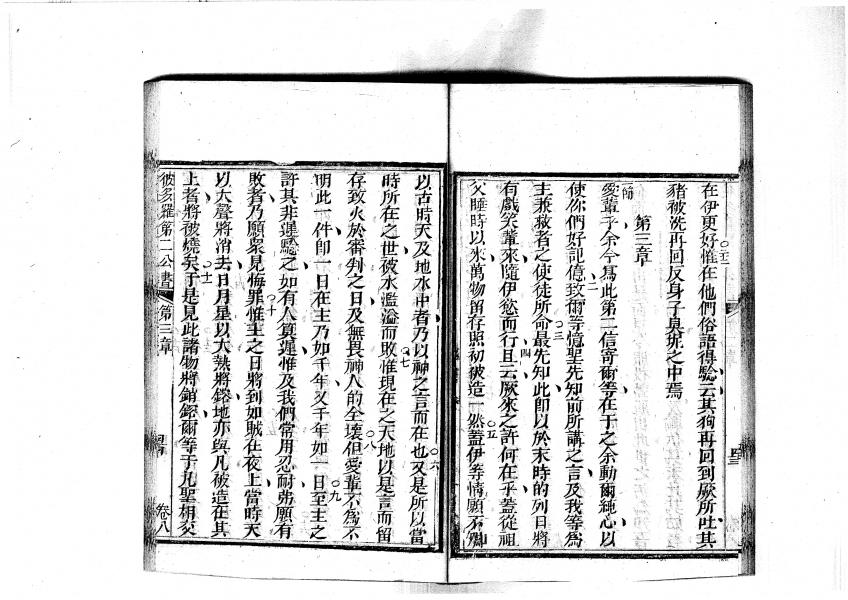 在伊更好惟在他們俗語得驗云其狗再回到厥所吐其
猪被洗再回反身子臭坭之中焉
第三章
愛輩乎余今寫此第二信寄爾等在于之余動爾純心以
使你們好記憶致爾等憶聖先知前所講之言及我等為
主兼救者之使徒所命最先知此即以於末時的列日將
有戲笑輩來隨伊慾而行且云厥來之許何在乎蓋從祖
父睡時以來萬物留存照初被造一然蓋伊等情願不知
以古時天及地水中者乃以神之言而在也又是所以當
時所在之世被水濫溢而敗惟現在之天地以是言而留
存致火於審判之日及無畏神人的全壞但愛輩不為不
明此一件即一日在主乃如千年又千年如一日至主之
許其非遲驗之如有人算遲惟及我們常用忍耐弗願有
敗者乃願衆見悔罪惟主之日將到如賊在夜上當時天
以大聲將消去日月星以大熱將鎔地亦與凡被造在其
上者將被燒矣于是見此諸物將銷鎔爾等于凡聖相交
彼多羅第二公書 第三章 卷八